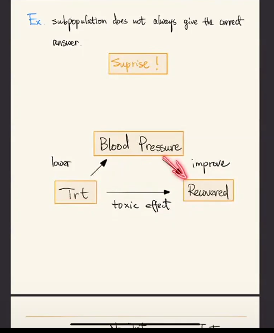 Ex. subpopulation does not always give the correct
answer.
Suprise !
Blood Pressure
lower
improve
Trt
Recovered
toxic effect